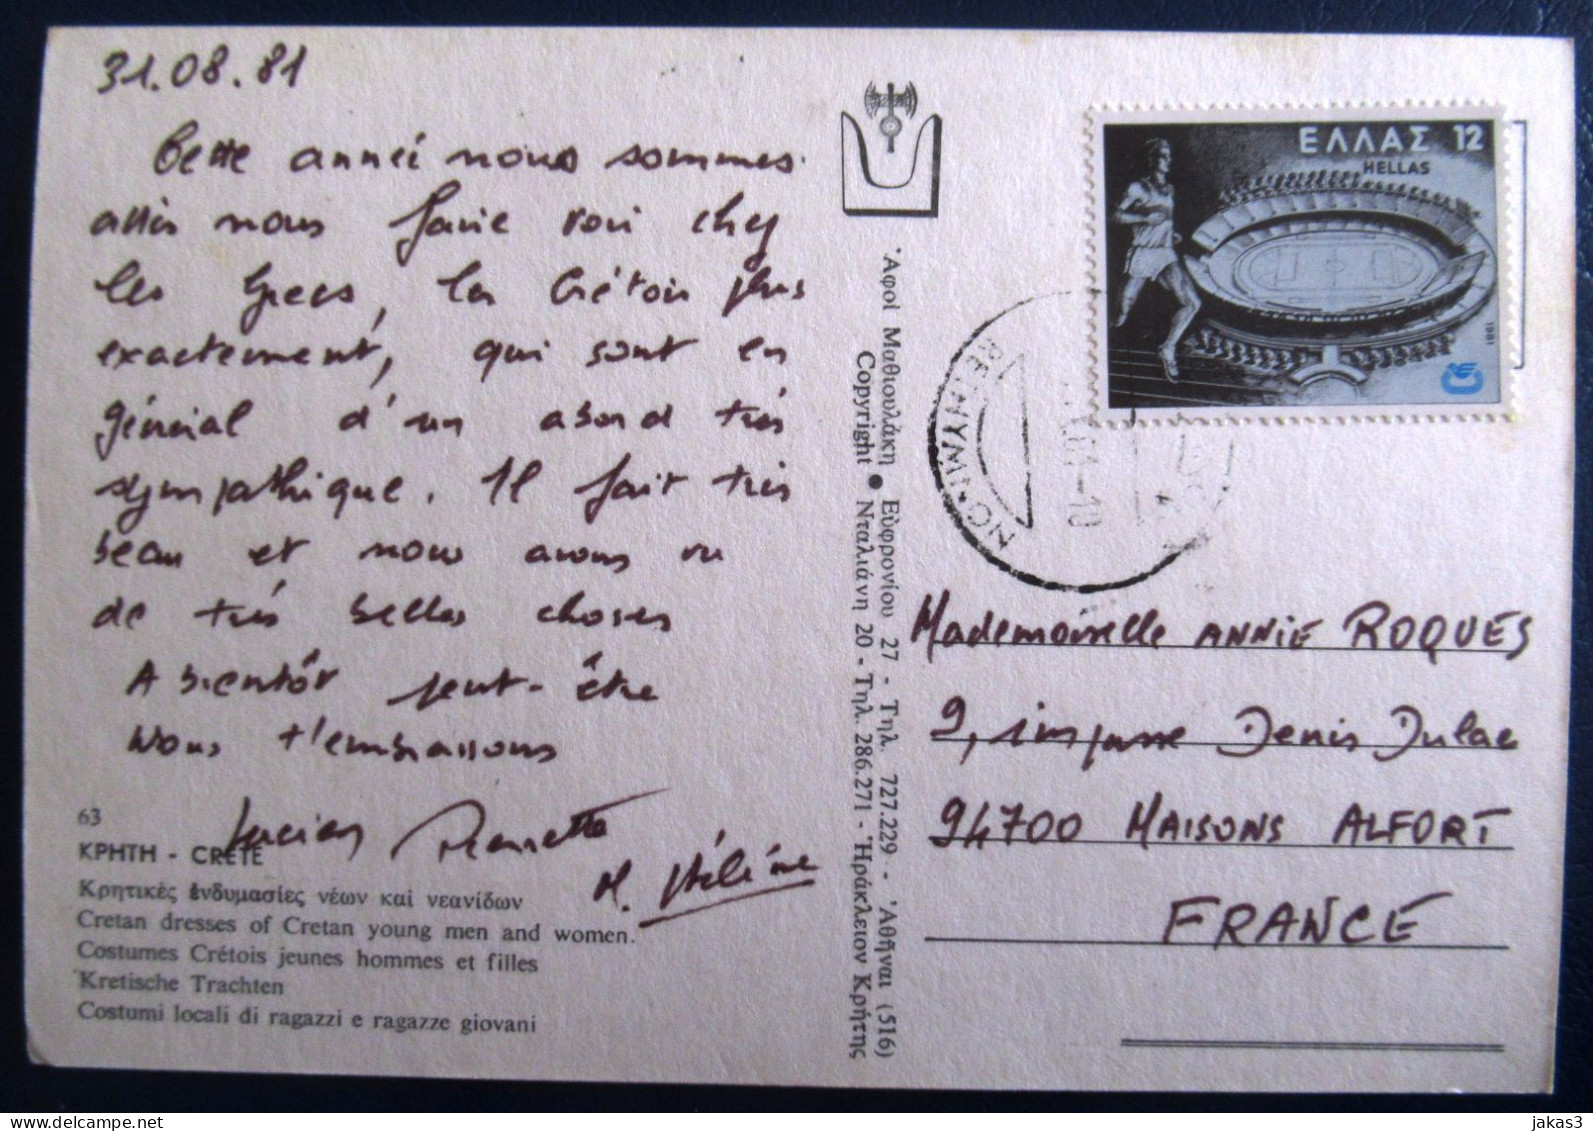 31.08.81
Cette année nous sommes
allés nous faire voir chez
les Grecs, les Crétois plus
exactement, qui sont en
général d'un abord très
sympathique. Il fait très
beau et nous avons vu
de très belles choses
A bientôt peut-être
Nous t'embrassons
Lucien Pierrette
M. Hélène
63
ΚΡΗΤΗ - CRETE
Κρητικὲς ἐνδυμασίες νέων καί νεανίδων
Cretan dresses of Cretan young men and women.
Costumes Crétois jeunes hommes et filles
Kretische Trachten
Costumi locali di ragazzi e ragazze giovani
Ἀφοί Μαθιουλάκη Εὐφρονίου 27 - Τηλ. 727.229 - Ἀθῆναι (516)
Copyright ● Νταλιάνη 20 - Τηλ. 286.271 - Ἡράκλειον Κρήτης
ΕΛΛΑΣ 12
HELLAS
1981
RETHYMNON
Mademoiselle ANNIE ROQUES
9, impasse Denis Dulac
94700 MAISONS ALFORT
FRANCE
jakas3